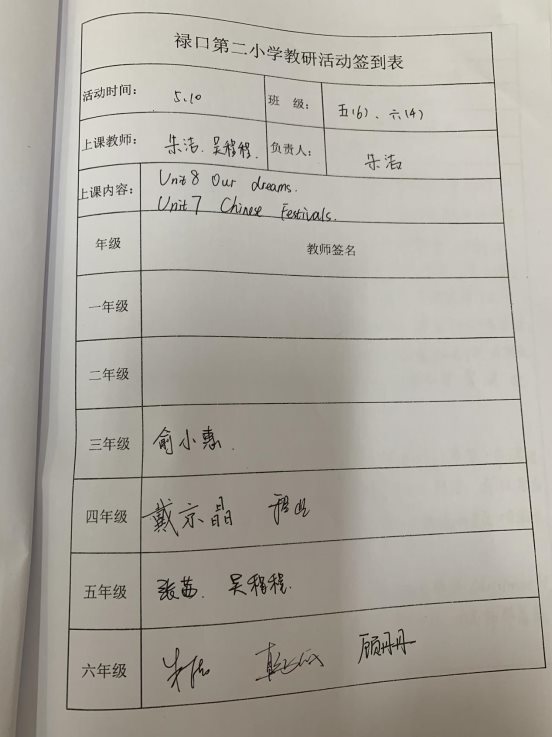 禄口第二小学教研活动签到表
活动时间： 5.10 班 级： 五(6)、六(4)
上课教师： 朱洁、吴程程. 负责人： 朱洁
上课内容： Unit 8 Our dreams.
Unit 7 Chinese Festivals.
年级 教师签名
一年级
二年级
三年级 俞小惠.
四年级 戴京晶
五年级 张苗. 吴程程.
六年级 朱洁 顾丹丹